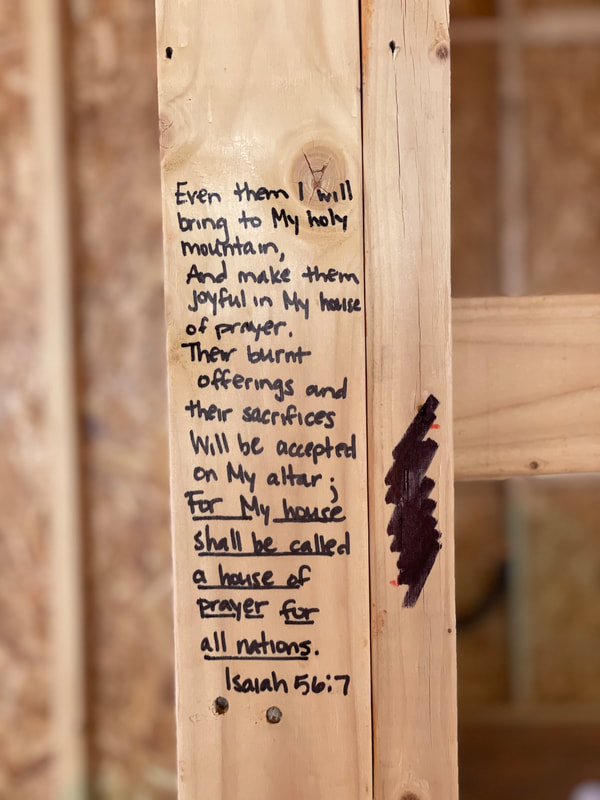 Even them I will
bring to My holy
mountain,
And make them
joyful in My house
of prayer.
Their burnt
offerings and
their sacrifices
Will be accepted
on My altar;
For My house
shall be called
a house of
prayer for
all nations.
Isaiah 56:7